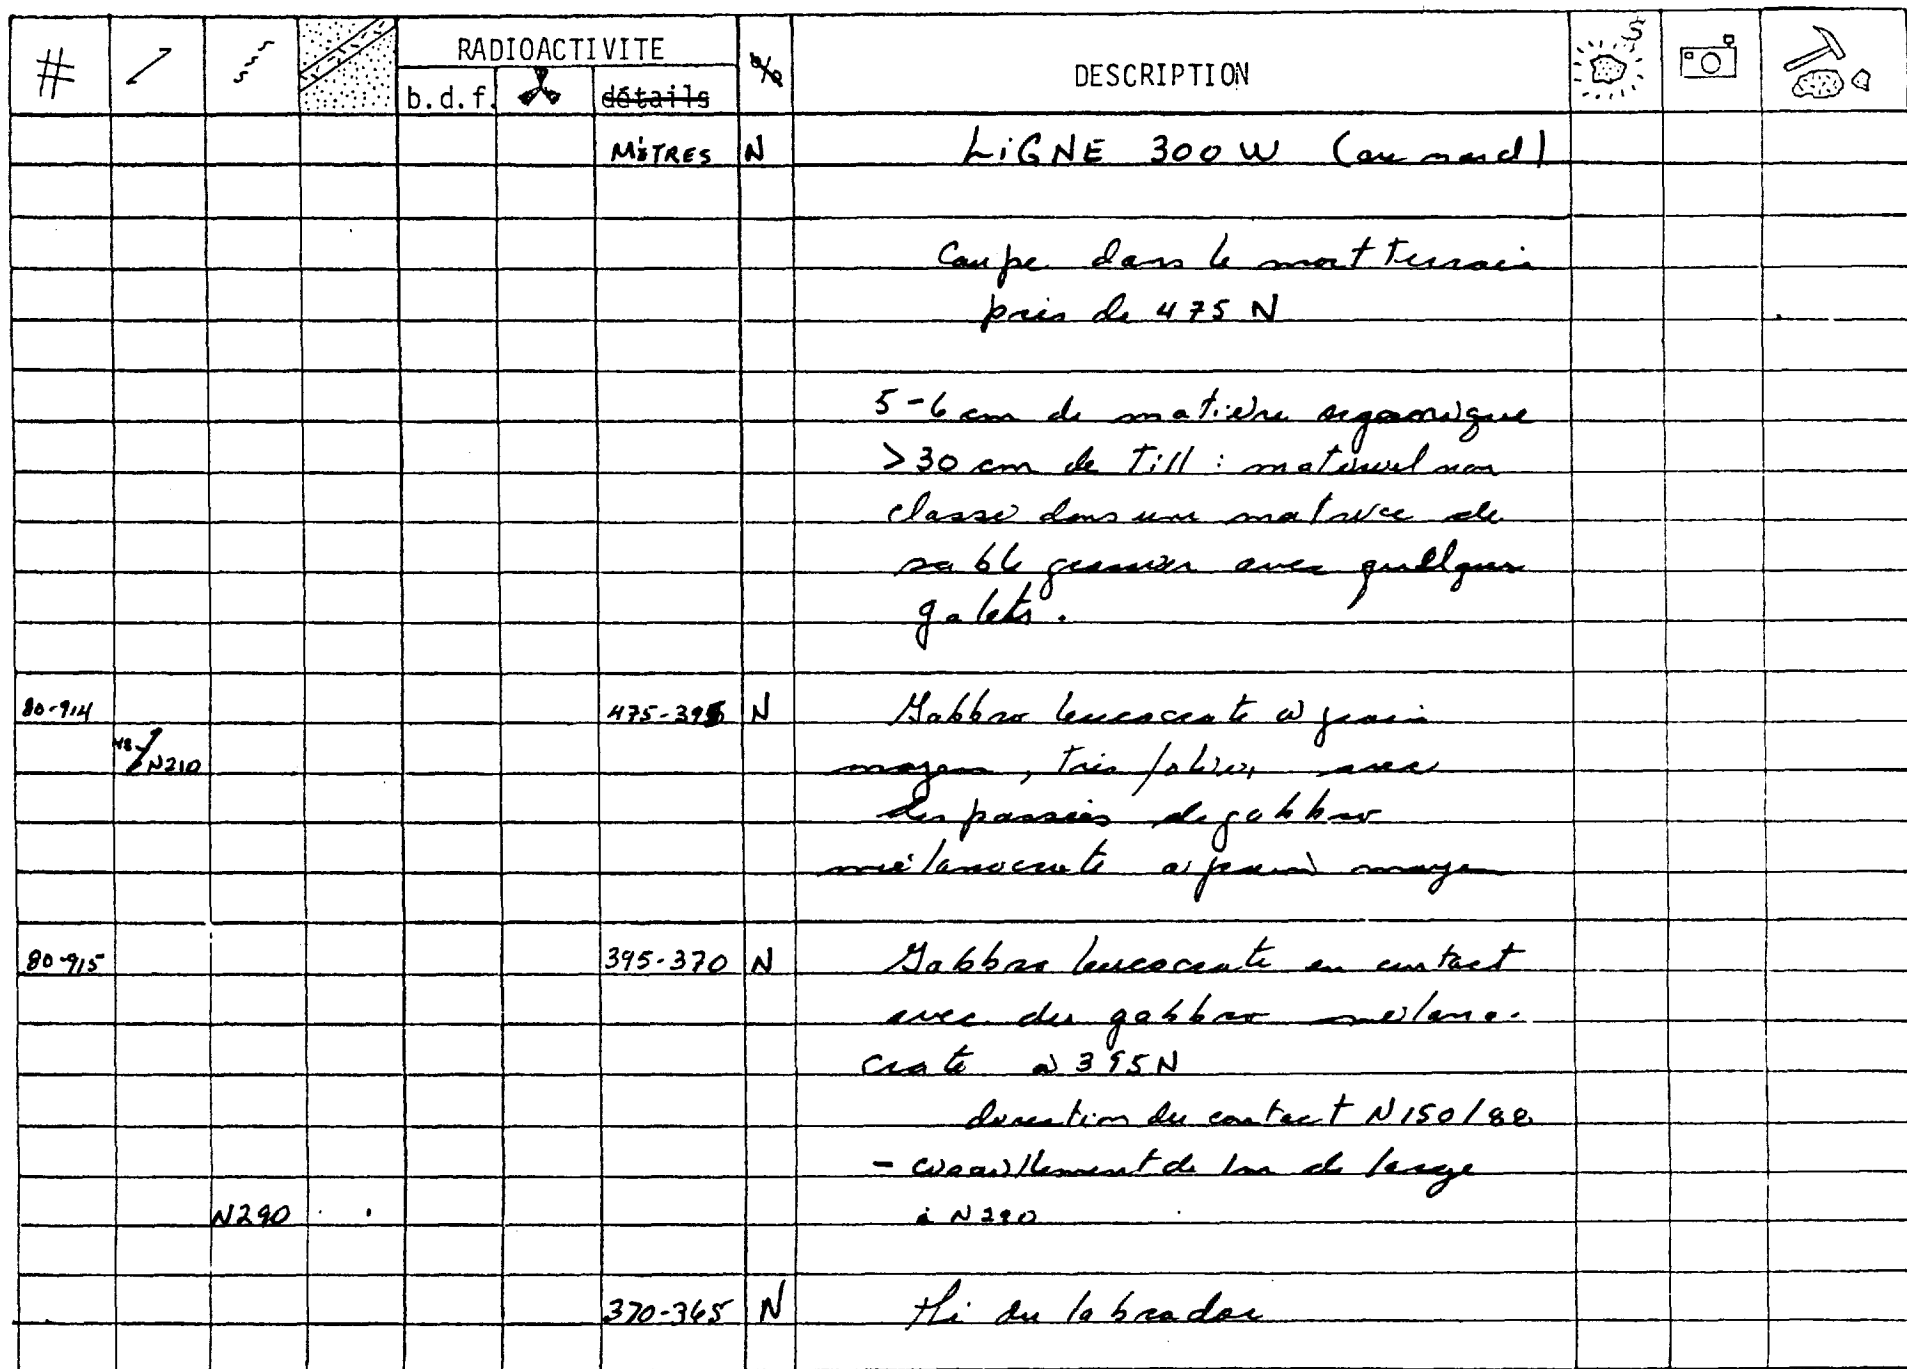 # RADIOACTIVITE % DESCRIPTION S
b.d.f. détails
MÈTRES N LIGNE 300 W (au nord)
Coupe dans le mort terrain
près de 475 N
5-6 cm de matière organique
>30 cm de Till : matériel non
classé dans une matrice de
sable grossier avec quelques
galets.
80-914 475-395 N Gabbro leucocrate à grain
48 N210 moyen, très folié, avec
des passées de gabbro
mélanocrate à grain moyen
80-915 395-370 N Gabbro leucocrate en contact
avec du gabbro mélano-
crate à 395N
direction du contact N150/88
- cisaillement de 1m de large
N290 à N290
370-365 N Thé du labrador